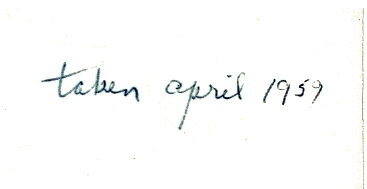 taken april 1959